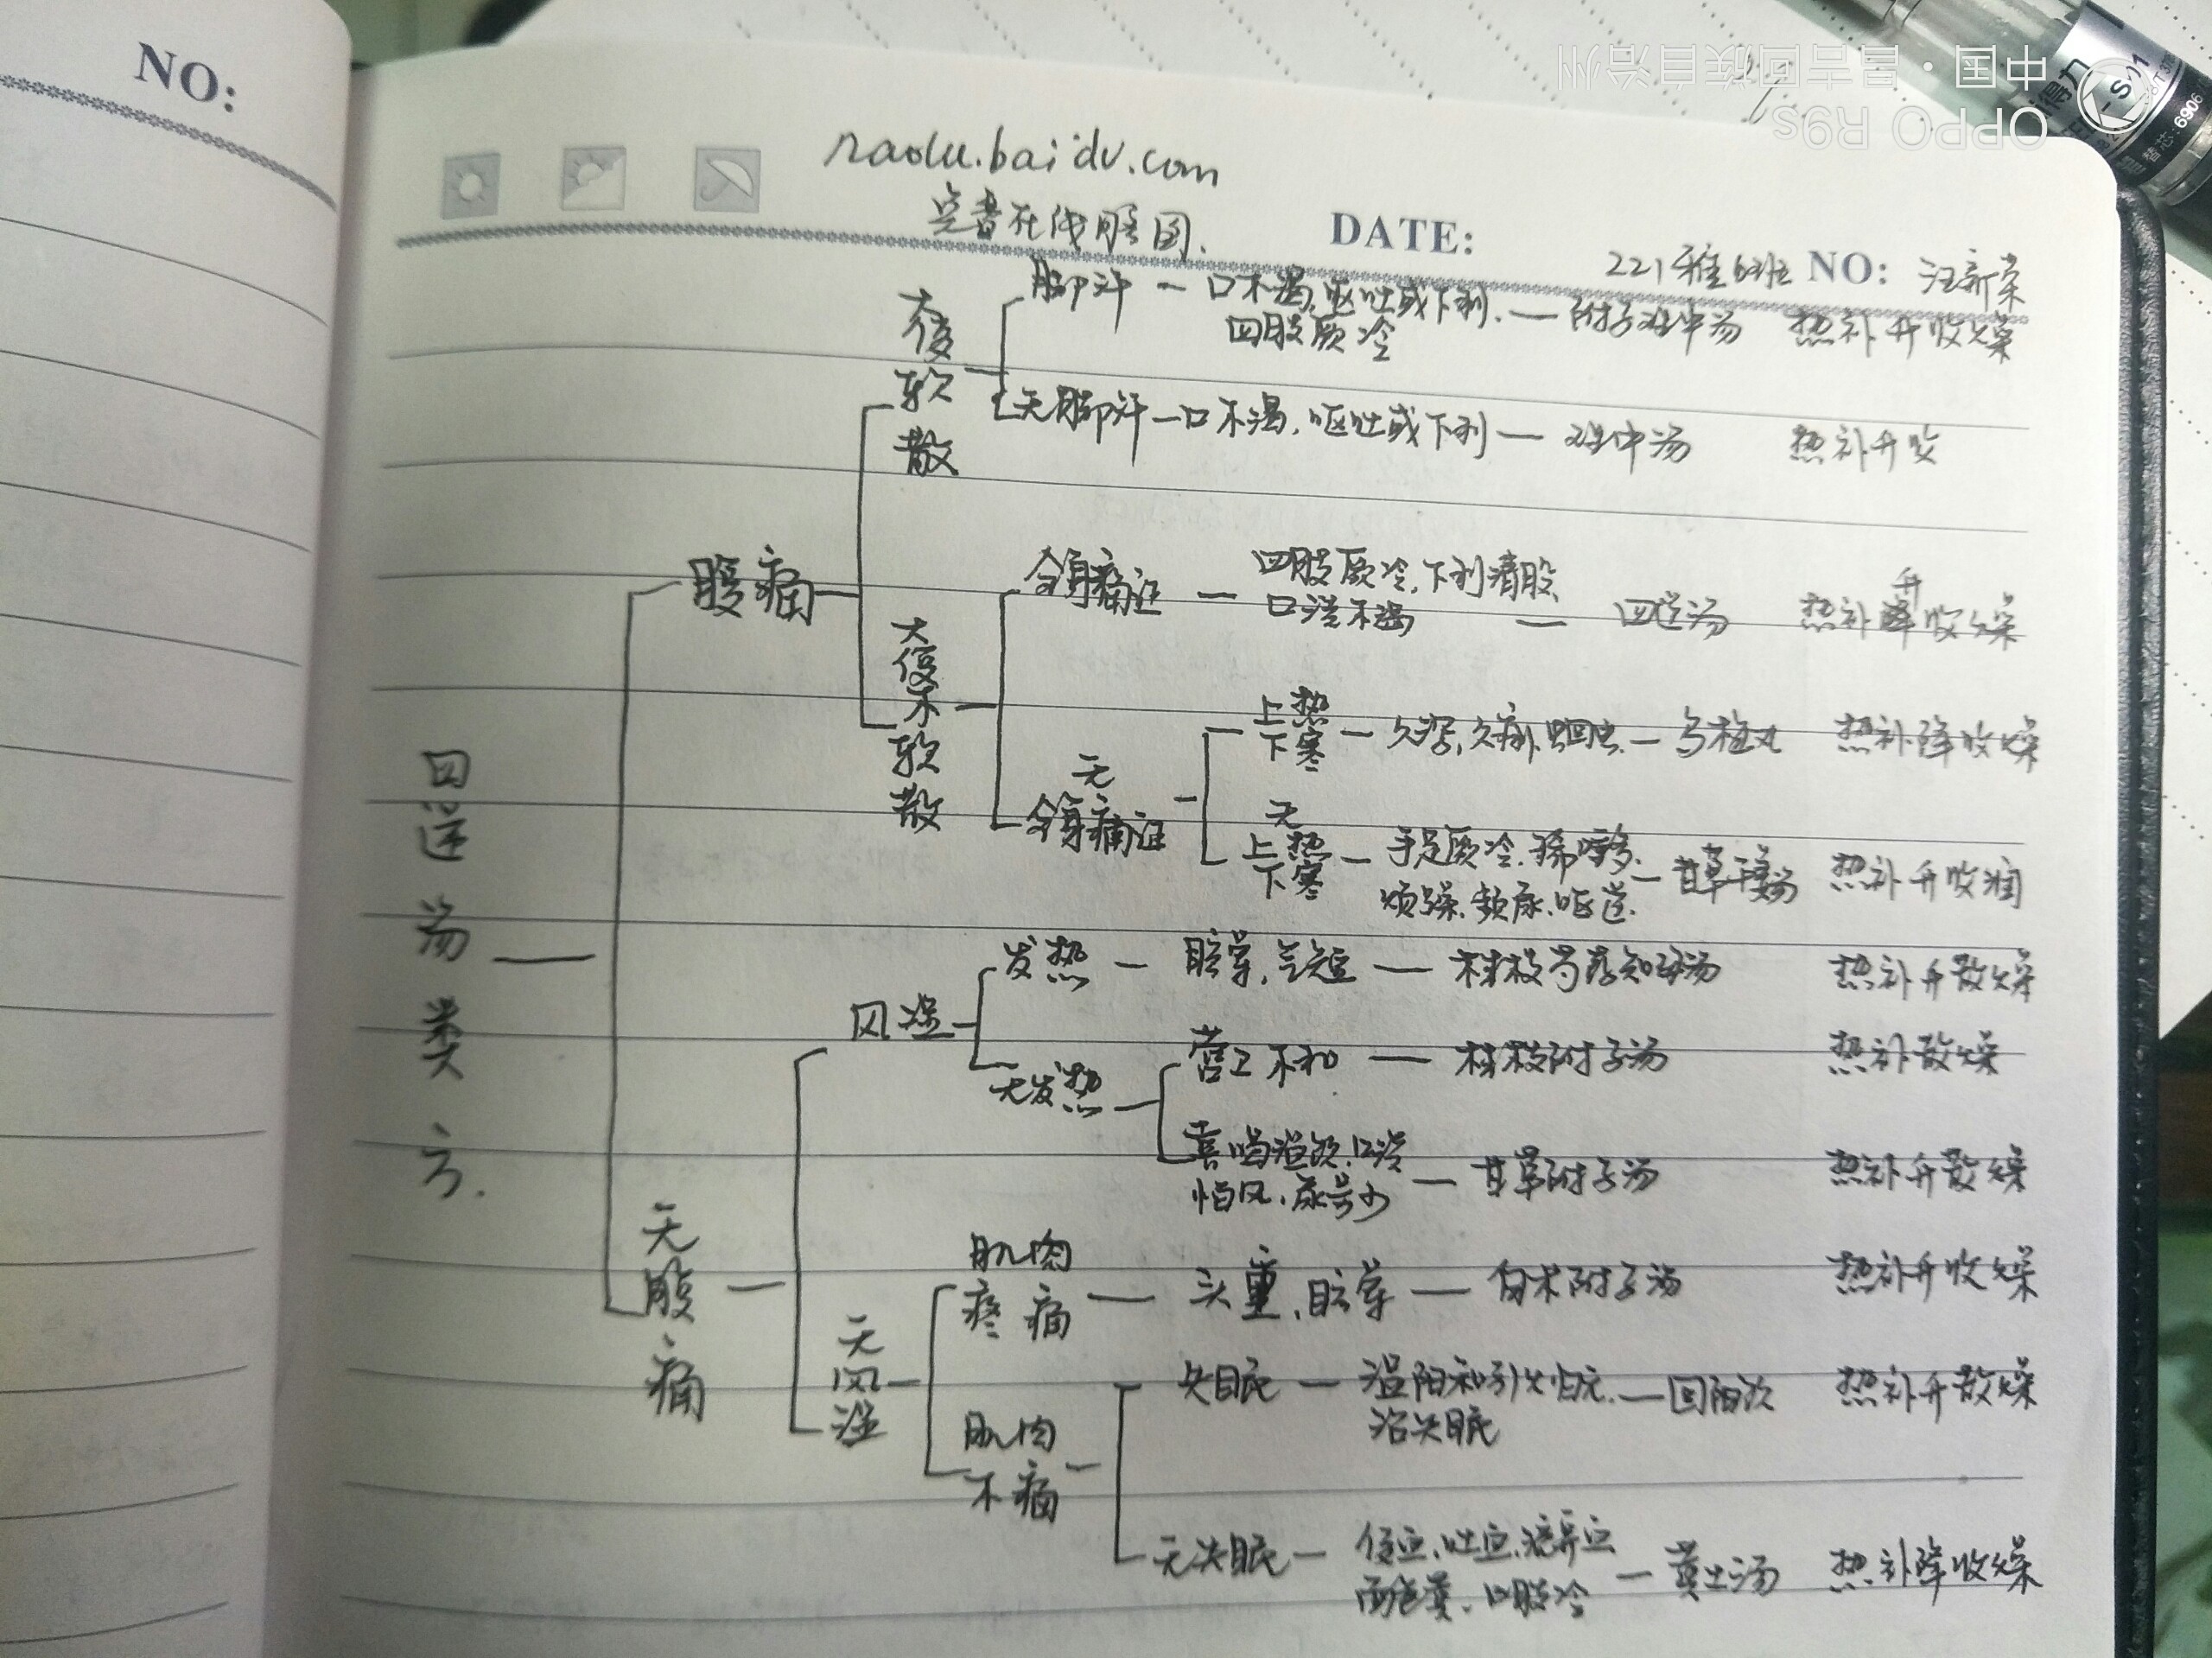 NO:
中国·昌吉回族自治州
OPPO R9s
得力
替芯:6906
naotu.baidu.com
百度在线脑图.
DATE:
NO:
221雅正班 汪新荣
四逆汤类方.
腹痛
大便软散
脚汗 — 口不渴,呕吐或下利. 四肢厥冷 — 附子理中汤 热补升收燥
无脚汗 — 口不渴,呕吐或下利 — 理中汤 热补升收
大便不软散
全身痛证 — 四肢厥冷,下利清谷, 口淡不渴 — 四逆汤 热补升收燥
无全身痛证
上热下寒 — 久泻,久痢,蛔虫 — 乌梅丸 热补降收燥
无上热下寒 — 手足厥冷.稀唾多. 烦躁.频尿.呕逆. — 甘草干姜汤 热补升收润
无腹痛
风湿
发热 — 眩晕,气短 — 桂枝芍药知母汤 热补升散燥
无发热
营卫不和 — 桂枝附子汤 热补散燥
喜喝温饮.口淡 怕风.尿量少 — 甘草附子汤 热补升散燥
无风湿
肌肉疼痛 — 头重,眩晕 — 白术附子汤 热补升收燥
肌肉不痛
失眠 — 温阳和引火归元. 治失眠 — 回阳饮 热补升散燥
无失眠 — 便血.吐血. 面色黄.四肢冷 — 黄土汤 热补降收燥